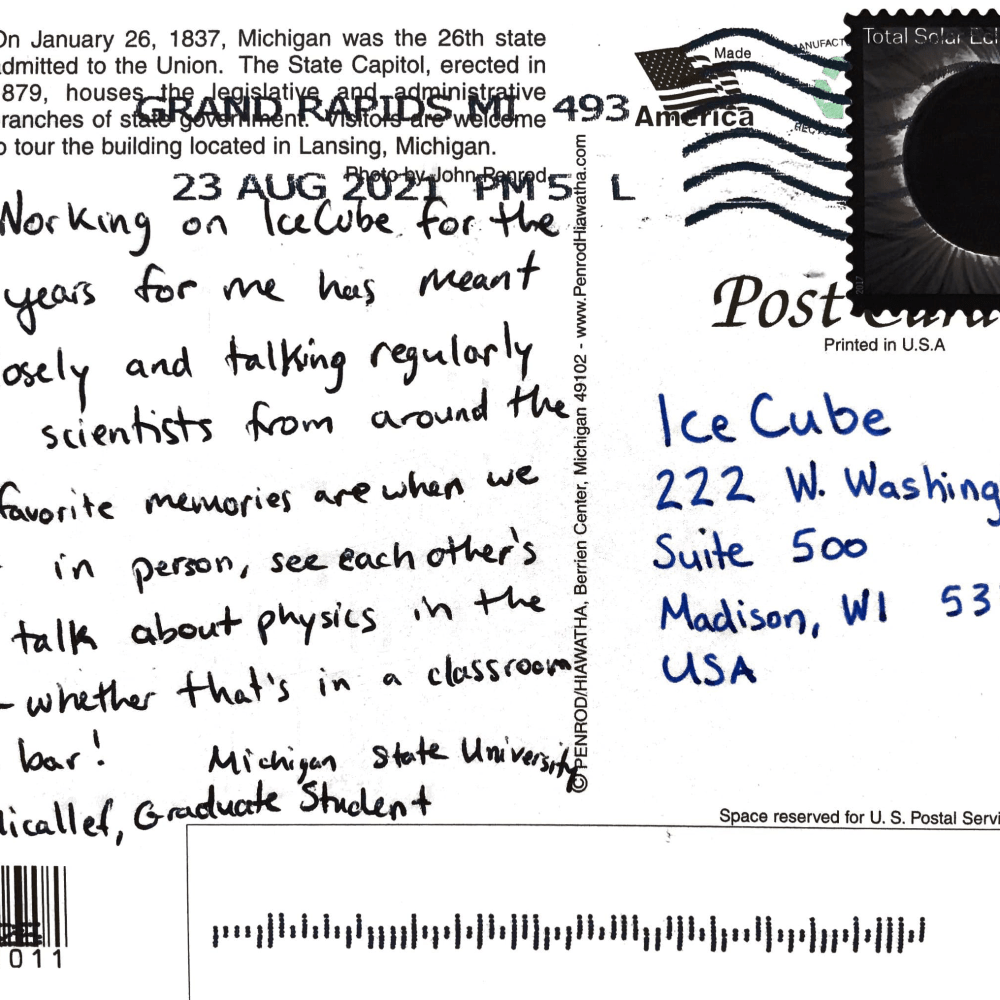 On January 26, 1837, Michigan was the 26th state
admitted to the Union. The State Capitol, erected in
879, houses the legislative and administrative
ranches of state government. Visitors are welcome
o tour the building located in Lansing, Michigan.
Photo by John Penrod
GRAND RAPIDS MI 493
23 AUG 2021 PM 5 L
Working on IceCube for the
years for me has meant
osely and talking regularly
scientists from around the
favorite memories are when we
in person, see each other's
talk about physics in the
- whether that's in a classroom
bar! Michigan State University
licallef, Graduate Student
011
© PENROD/HIAWATHA, Berrien Center, Michigan 49102 - www.PenrodHiawatha.com
Made
America
MANUFACT
REC
Total Solar Ecl
2017
Post Card
Printed in U.S.A
IceCube
222 W. Washing
Suite 500
Madison, WI 53
USA
Space reserved for U. S. Postal Servi